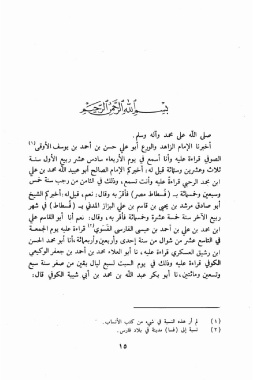 بسم الله الرحمن الرحيم
صلى الله على محمد وآله وسلم.
أخبرنا الإمام الزاهد والورع أبو علي حسن بن أحمد بن يوسف الأوقي(١)
الصوفي قراءة عليه وأنا أسمع في يوم الأربعاء سادس عشر ربيع الأول سنة
ثلاث وعشرين وستمائة قيل له: أخبركم الإمام الصالح أبو عبيد الله محمد بن علي
ابن محمد الرحبي قراءة عليه وأنت تسمع، وذلك في الثامن من رجب سنة خمس
وسبعين وخمسمائة بـ (فسطاط مصر) فأقر به وقال: نعم، قيل له: أخبركم الشيخ
أبو صادق مرشد بن يحيى بن قاسم بن علي البزاز المدني بـ (فسطاط) في شهر
ربيع الآخر سنة خمسة عشرة وخمسمائة فأقر به، وقال: نعم أنا أبو القاسم علي
ابن محمد بن علي بن أحمد بن عيسى الفارسي الفسوي(٢) قراءة عليه يوم الجمعة
في التاسع عشر من شوال من سنة إحدى وأربعين وأربعمائة، أنا أبو محمد الحسن
ابن رشيق العسكري قراءة عليه، نا أبو العلاء محمد بن أحمد بن جعفر الوكيعي
الكوفي قراءة عليه وذلك في يوم السبت لسبع ليال بقين من صفر سنة سبع
وتسعين ومائتين، نا أبو بكر عبد الله بن محمد بن أبي شيبة الكوفي قال:
(١) لم أر هذه النسبة في شيء من كتب الأنساب.
(٢) نسبة إلى (فسا) مدينة في بلاد فارس.
١٥